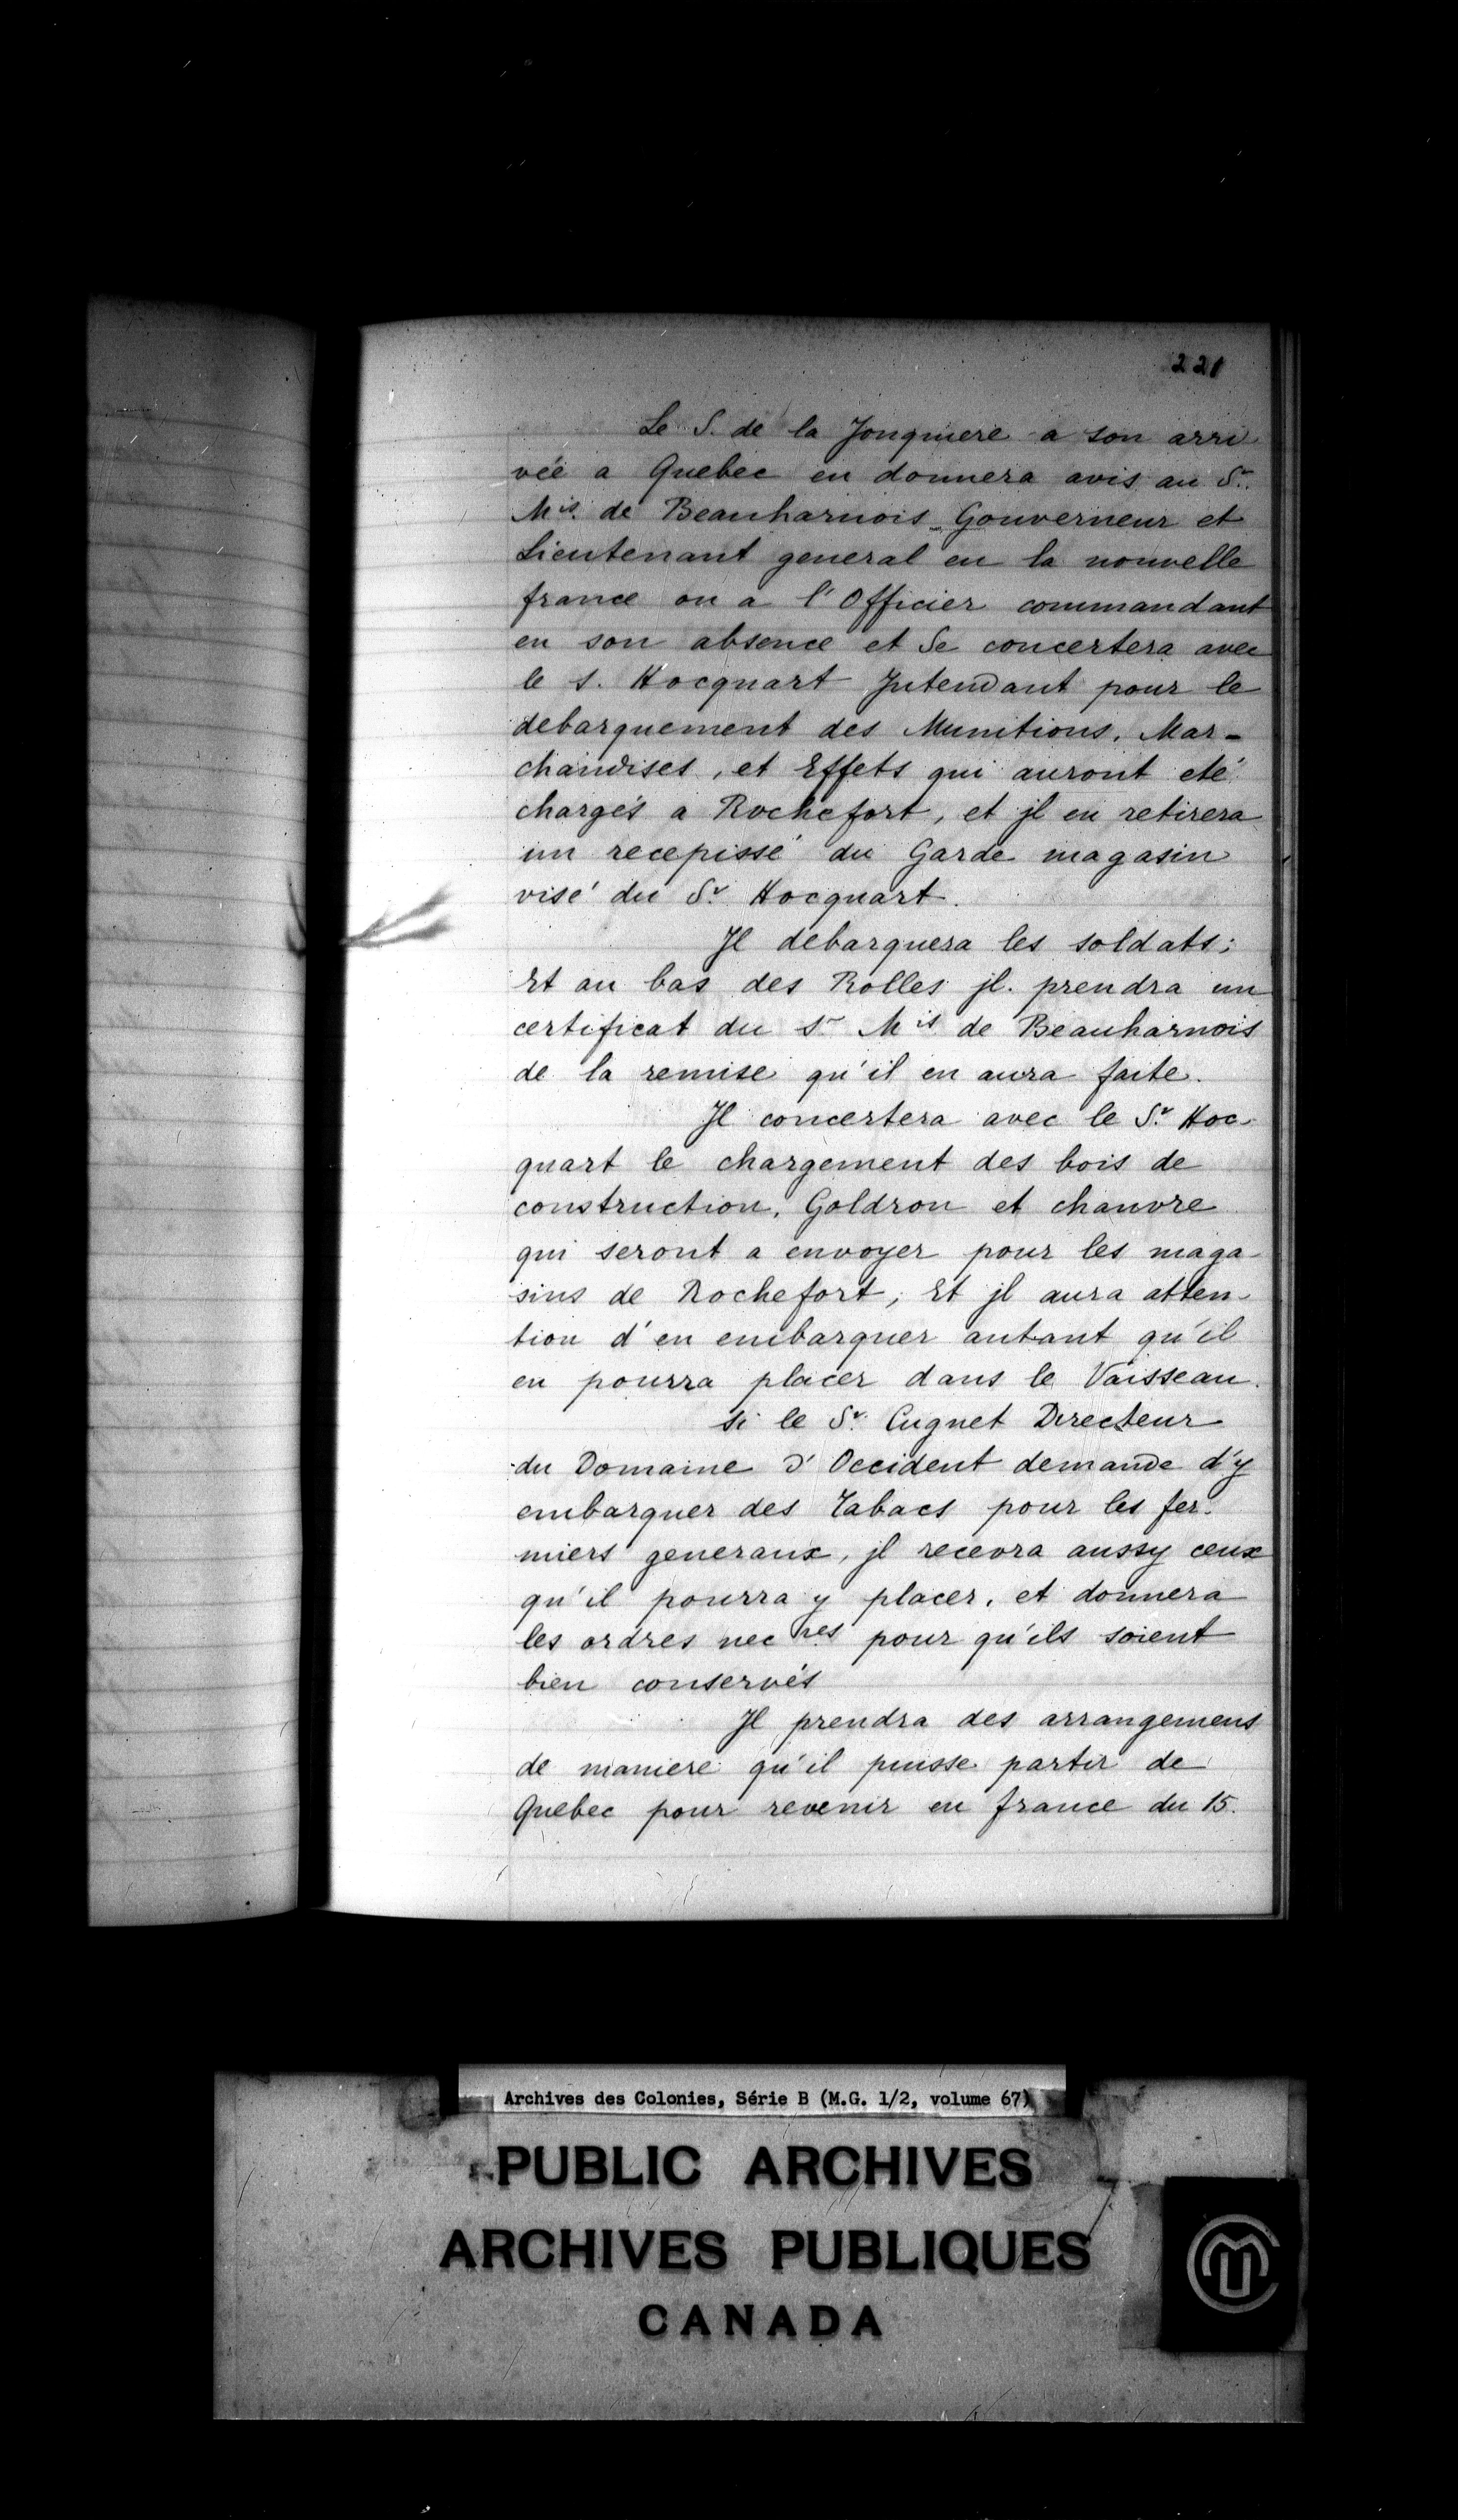 221
Le S. de la Jonquiere a son arri
vée a Quebec en donnera avis au Sr.
Mis. de Beauharnois Gouverneur et
Lieutenant general en la nouvelle
france ou a l'Officier commandant
en son absence et Se concertera avec
le s. Hocquart Jntendant pour le
debarquement des Munitions, Mar-
chandises, et Effets qui auront eté
chargés a Rochefort, et jl en retirera
un recepissé du Garde magasin
visé du Sr. Hocquart.
Jl debarquera les soldats;
Et au bas des Rolles jl. prendra un
certificat du sr Mis de Beauharnois
de la remise qu'il en aura faite.
Jl concertera avec le Sr. Hoc-
quart le chargement des bois de
construction, Goldron et chanvre
qui seront a envoyer pour les maga
sins de Rochefort; Et jl aura atten-
tion d'en embarquer autant qu'il
en pourra placer dans le Vaisseau.
si le Sr. Cugnet Directeur
du Domaine D'Occident demande d'y
embarquer des Tabacs pour les fer-
miers generaux, jl recevra aussy ceux
qu'il pourra y placer, et donnera
les ordres necres pour qu'ils soient
bien conservés
Jl prendra des arrangemens
de maniere qu'il puisse partir de
Quebec pour revenir en france du 15.
Archives des Colonies, Série B (M.G. 1/2, volume 67)
PUBLIC ARCHIVES
ARCHIVES PUBLIQUES
CANADA